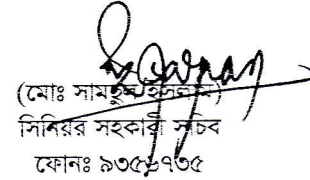 (মোঃ সামছুল ইসলাম)
সিনিয়র সহকারী সচিব
ফোনঃ ৯৩৫৬৭৩৫